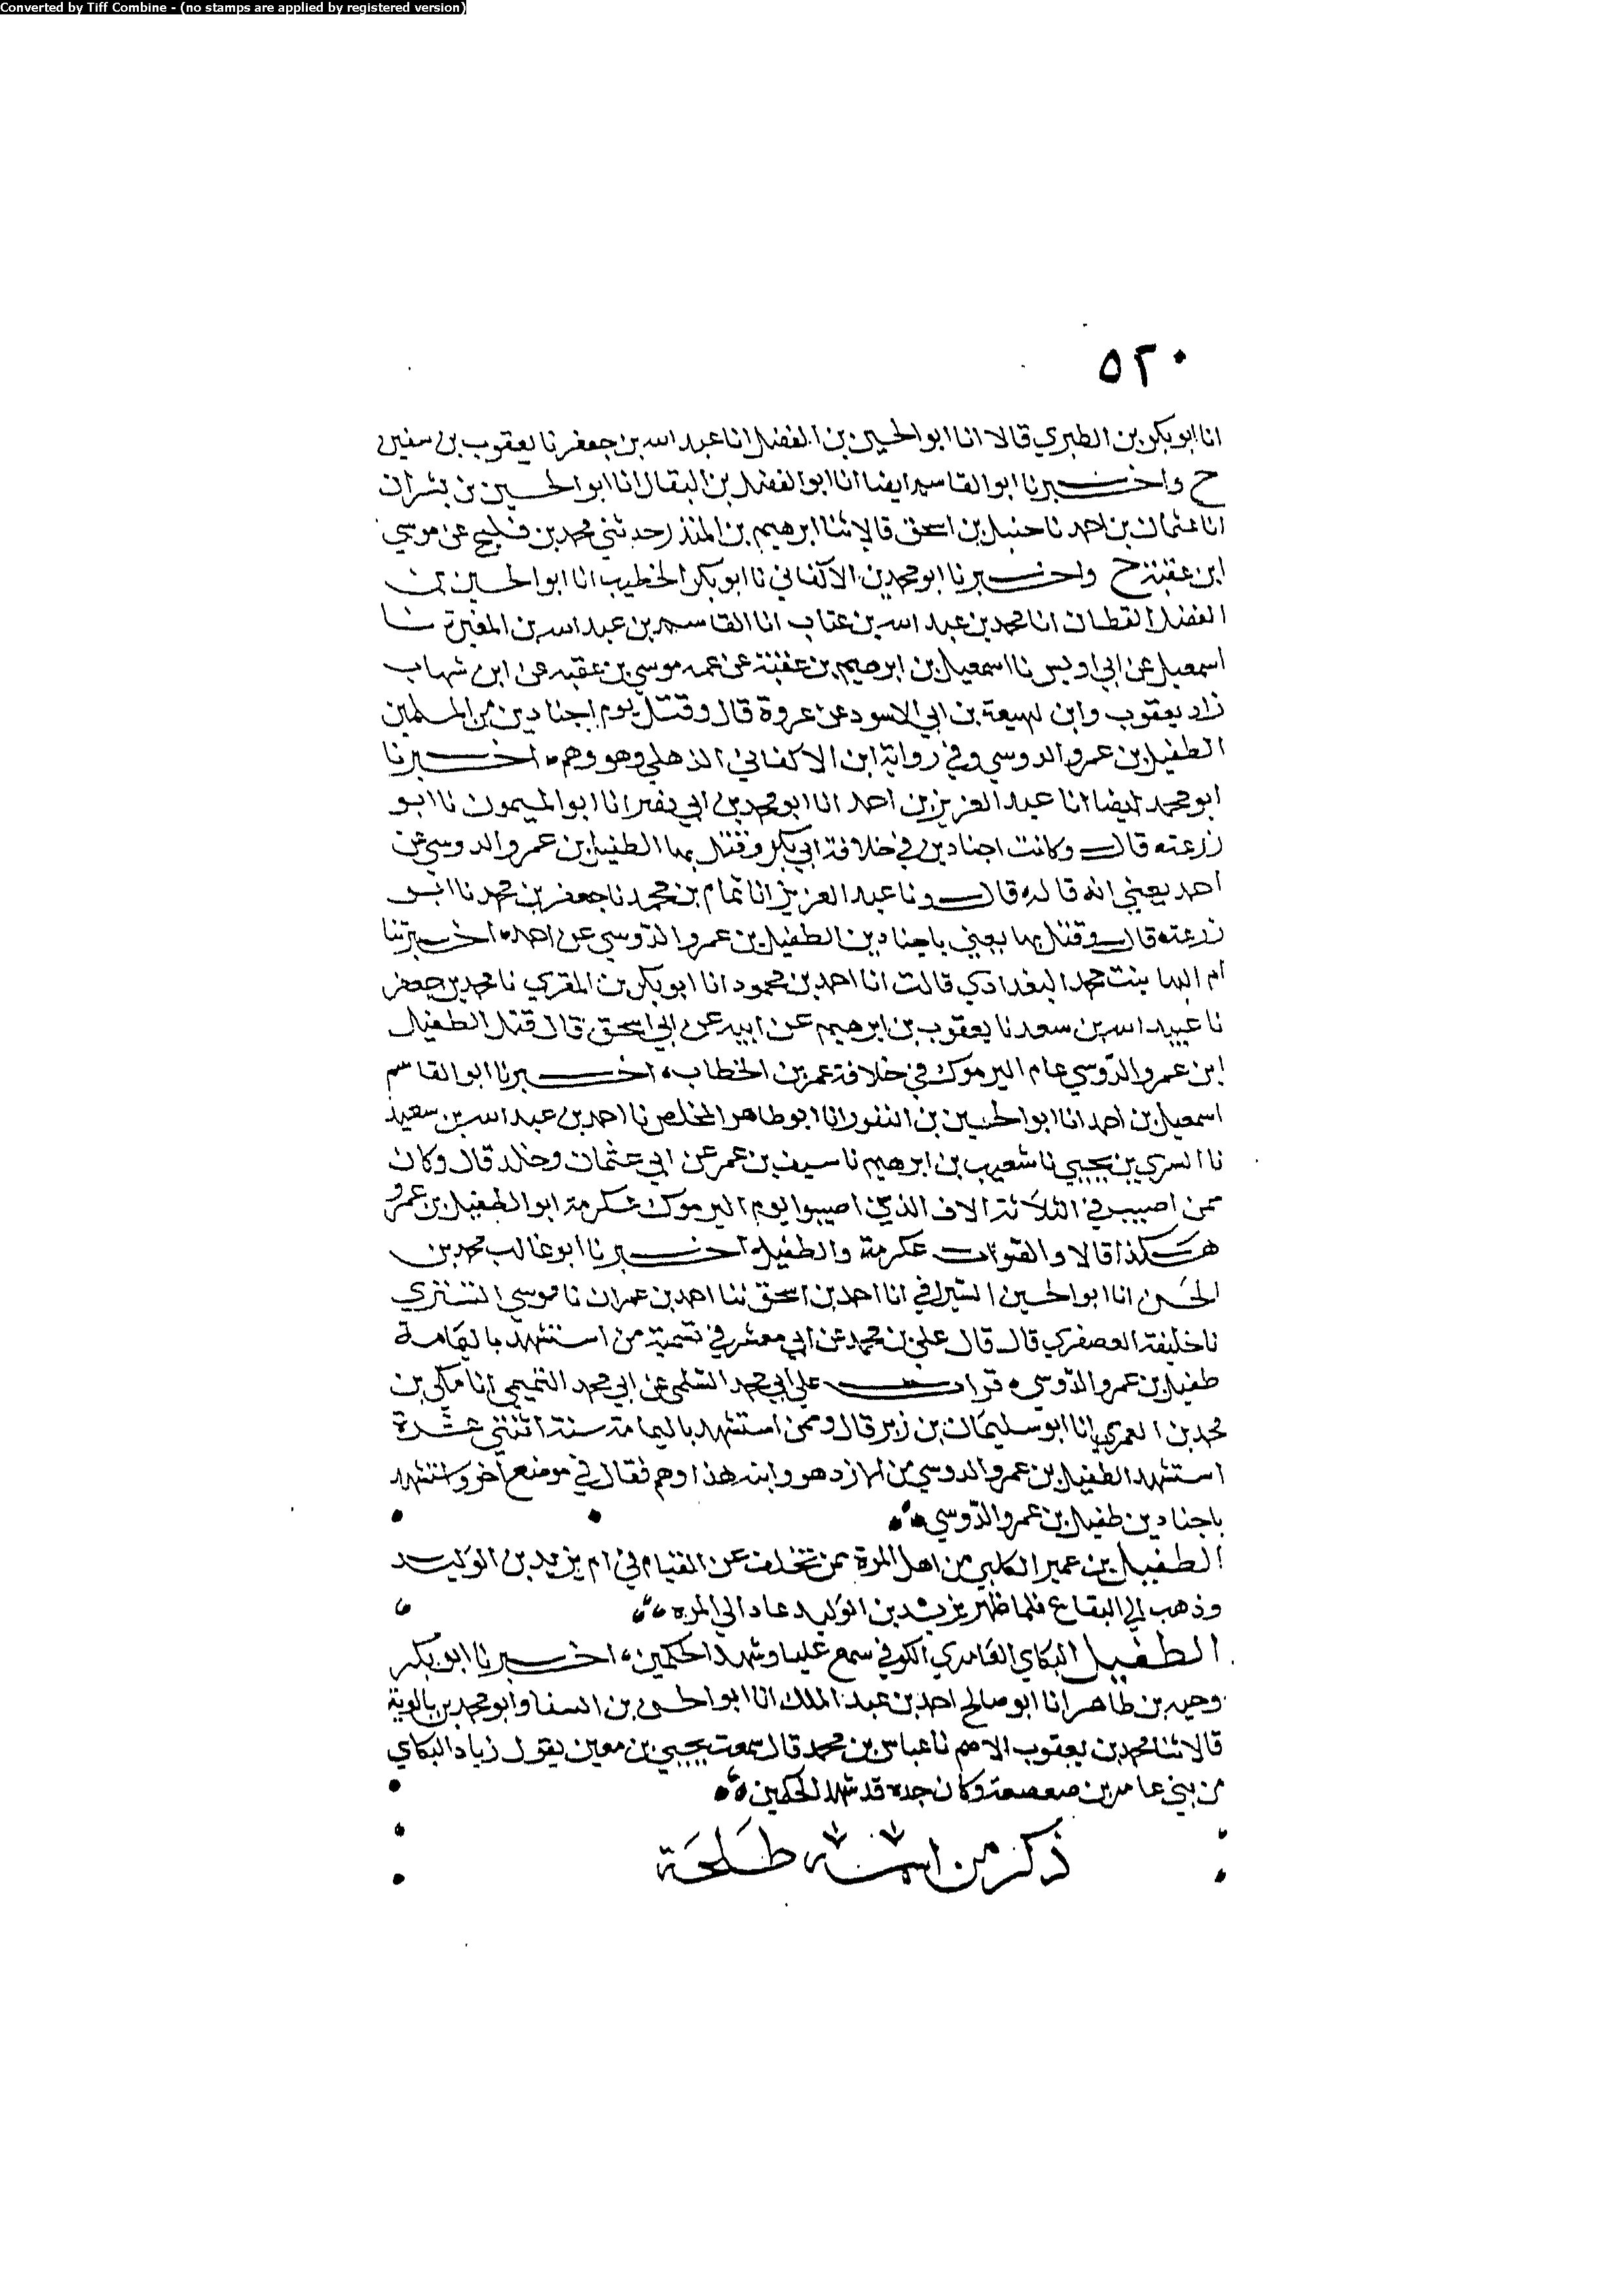 Converted by Tiff Combine - (no stamps are applied by registered version)
٥٢٠
انا ابو بكر بن الطبري قالا انا ابو الحسين بن الفضل انا عبد الله بن جعفر نا يعقوب بن سفين
ح واخبرنا ابو القاسم ايضا انا ابو الفضل بن البقال انا ابو الحسين بن بشران
انا عثمان بن احمد نا حنبل بن اسحق قالا ثنا ابرهيم بن المنذر حدثني محمد بن فليح عن موسي
ابن عقبة ح واخبرنا ابو محمد بن الاكفاني نا ابو بكر الخطيب انا ابو الحسين بن
الفضل القطان انا محمد بن عبد الله بن عتاب انا القاسم بن عبد الله بن المغيرة نا
اسمعيل عن ابي اويس نا اسمعيل بن ابرهيم بن عقبة عن عمه موسي بن عقبه عن ابن شهاب
زاد يعقوب وابن لهيعة بن ابي الاسود عن عروة قال وقتل يوم اجنادين من المسلمين
الطفيل بن عمرو الدوسي وفي رواية ابن الاكفاني الذهلي وهو وهم اخبرنا
ابو محمد ايضا انا عبد العزيز بن احمد انا ابو محمد بن ابي نصر انا ابو الميمون نا ابو
زرعته قال وكانت اجنادين في خلافة ابي بكر وقتل بها الطفيل بن عمرو الدوسي عن
احمد يعني انه قاله قال ونا عبد العزيز انا تمام بن محمد نا جعفر بن محمد نا ابو
زرعته قال وقتل بها يعني باجنادين الطفيل بن عمرو الدّوسي عن احمد اخبرتنا
ام البها بنت محمد البغدادي قالت انا احمد بن محمود انا ابو بكر بن المقري نا محمد بن جعفر
نا عبيد الله بن سعد نا يعقوب بن ابرهيم عن ابيه عن ابي اسحق قال قتل الطفيل
ابن عمرو الدّوسي عام اليرموك في خلافة عمر بن الخطاب اخبرنا ابو القاسم
اسمعيل بن احمد انا ابو الحسين بن النقور انا ابو طاهر المخلص نا احمد بن عبد الله بن سعيد
نا السري بن يحيي نا شعيب بن ابرهيم نا سيف بن عمر عن ابي عثمان وخلد قال وكان
ممن اصيب في الثلاثة الاف الذين اصيبوا يوم اليرموك عكرمة ابو الطفيل بن عمرو
هكذا قالا والصواب عكرمة والطفيل اخبرنا ابو غالب محمد بن
الحسن انا ابو الحسين السّيرافي انا احمد بن اسحق ثنا احمد بن عمران نا موسي التستري
نا خليفة العصفري قال قال علي بن محمد عن ابي معشر في تسمية من استشهد باليمامة
طفيل بن عمرو الدّوسي قرات علي ابي محمد السّلمي عن ابي محمد التميمي انا مكي بن
محمد بن العمري انا ابو سليمان بن زبر قال وممن استشهد باليمامة سنة اثنتي عشرة
استشهد الطفيل بن عمرو الدوسي من الازد هو وابنه هذا وهم فقال في موضع اخر واستشهد
باجنادين طفيل بن عمرو الدّوسي
الطفيل بن عمير الكلبي من اهل المزة ممن تخلف عن القيام في ام يزيد بن الوليد
وذهب الي البقاع فلما ظهر يزيد بن الوليد عاد الي المزه
الطفيل البكاي العامري الكوفي سمع عليا وشهد الحكمين اخبرنا ابو بكر
وجيه بن طاهر انا ابو صالح احمد بن عبد الملك انا ابو الحسن بن السقا وابو محمد بن بالوية
قالا ثنا محمد بن يعقوب الاصم نا عباس بن محمد قال سمعت يحيي بن معين يقول زياد البكاي
من بني عامر بن صعصعة وكان جده قد شهد الحكمين
ذكر من اسمه طلحة